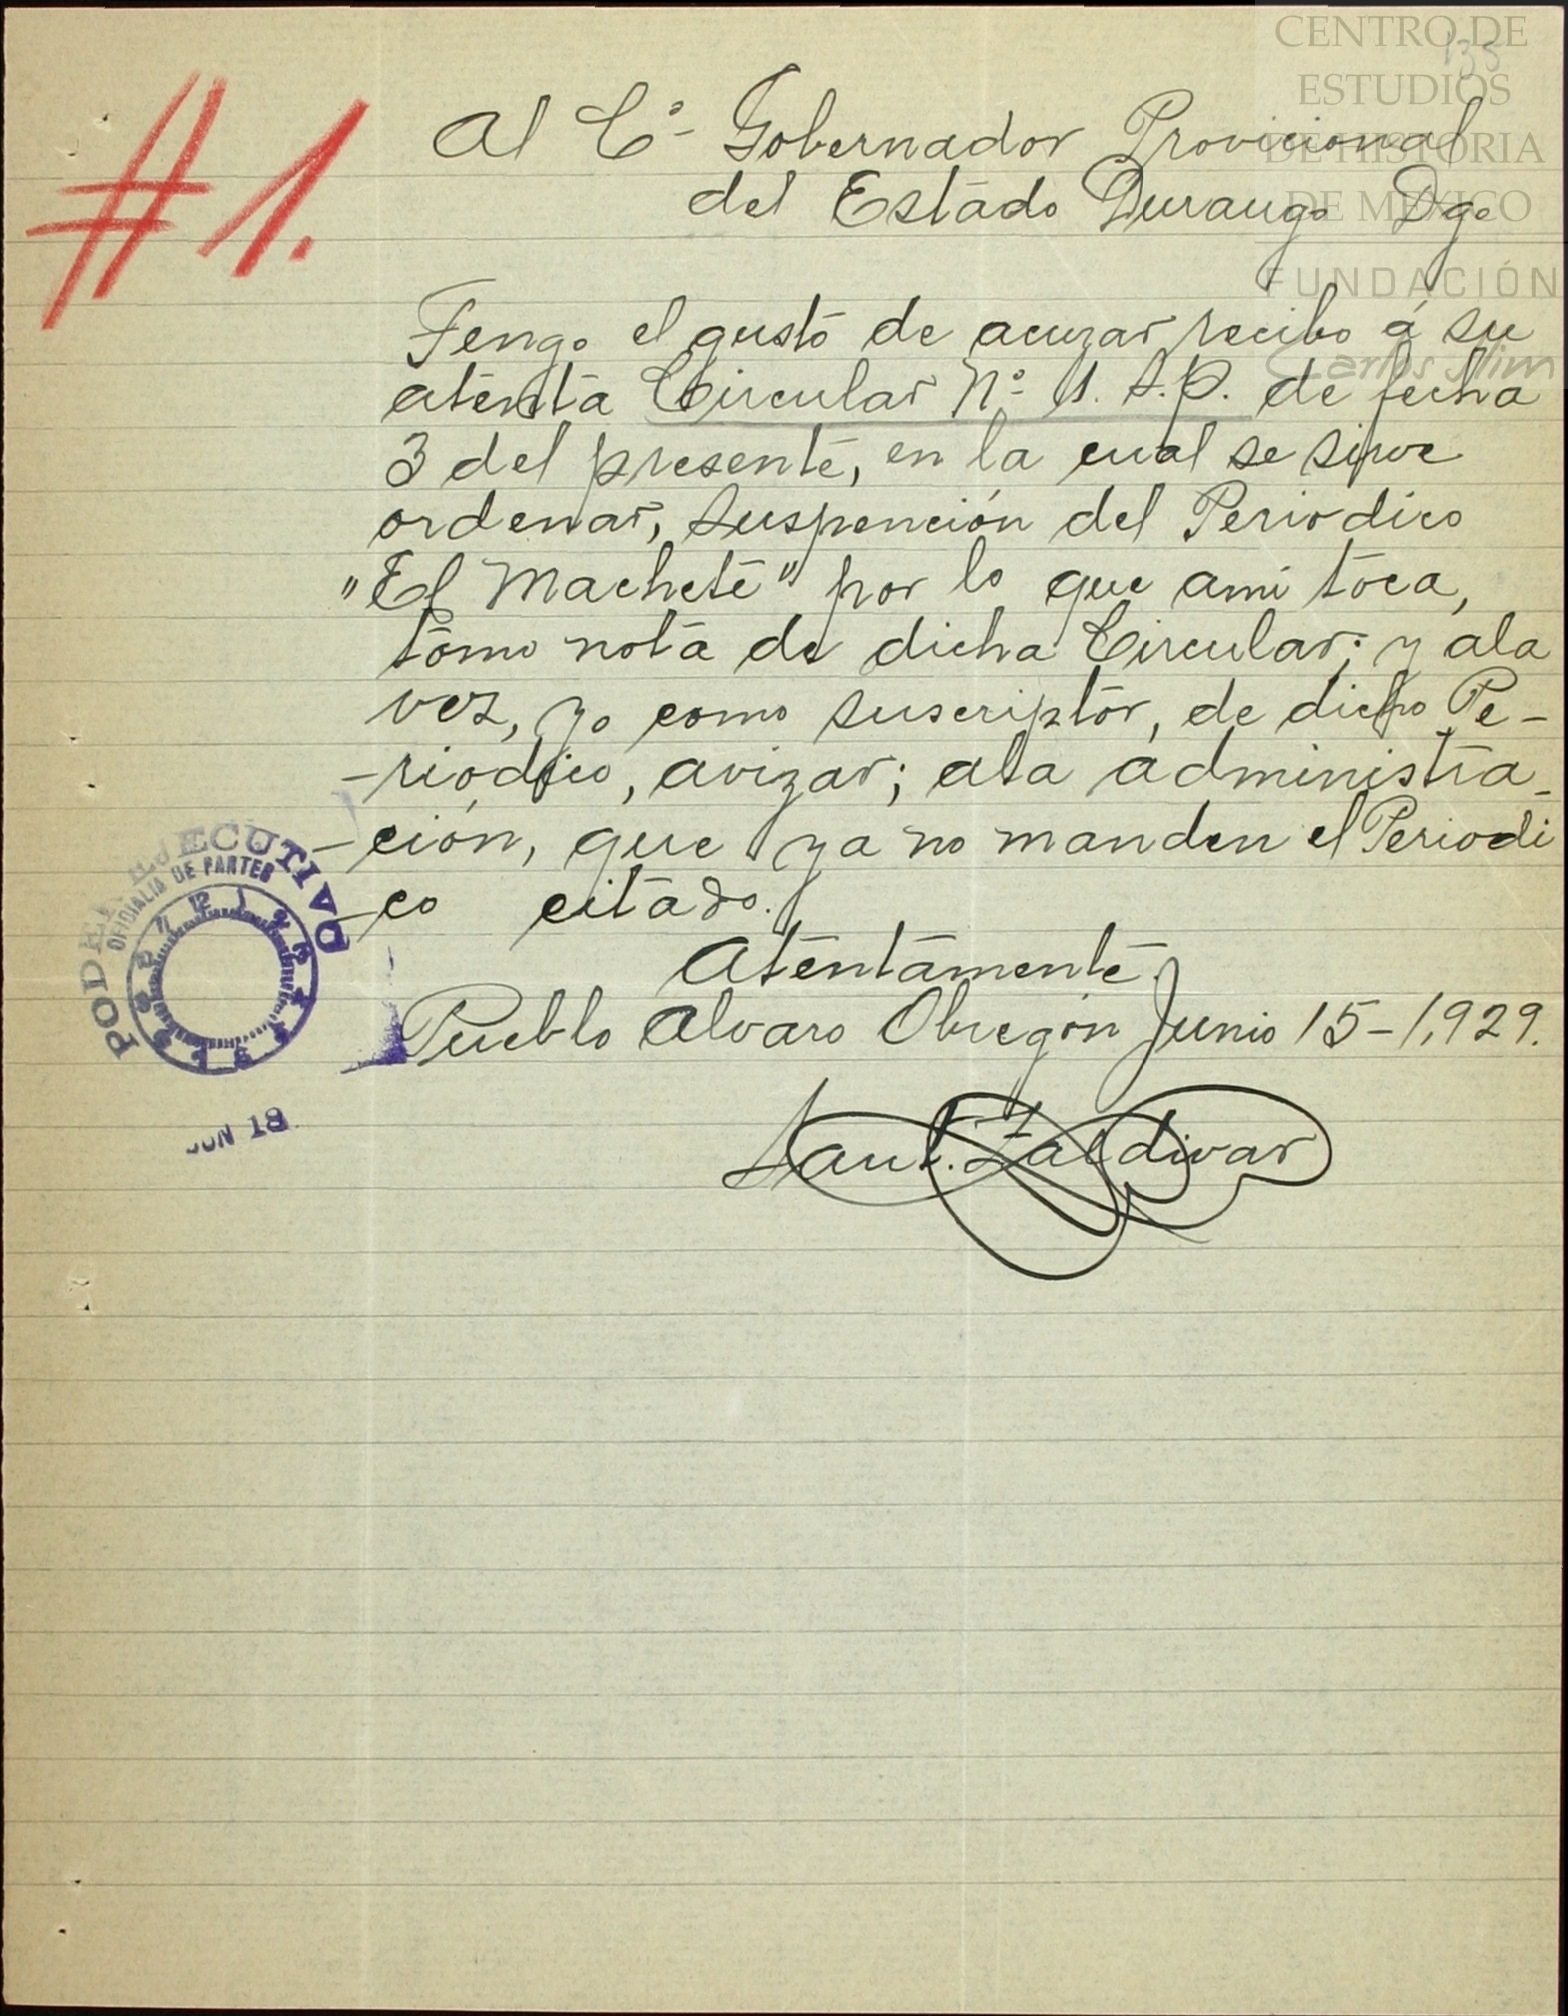 CENTRO DE
ESTUDIOS
DE HISTORIA
DE MÉXICO
FUNDACIÓN
Carlos Slim
135
#1.
Al C.º Gobernador Provicional
del Estado Durango Dgo
Tengo el gusto de acuzar recibo á su
atenta Circular Nº U. S.P. de fecha
3 del presente, en la cual se sirve
ordenar, suspención del Periodico
"El Machete" por lo que ami toca,
tomo nota de dicha Circular; y ala
vez, yo como suscriptor, de dicho Pe-
-riodico, avizar; ala administra-
-ción, que ya no manden el Periodi
-co citado.
Atentamente
Pueblo Alvaro Obregón Junio 15-1,929.
Sant. Zaldivar
PODER EJECUTIVO
OFICIALIA DE PARTES
JUN 18